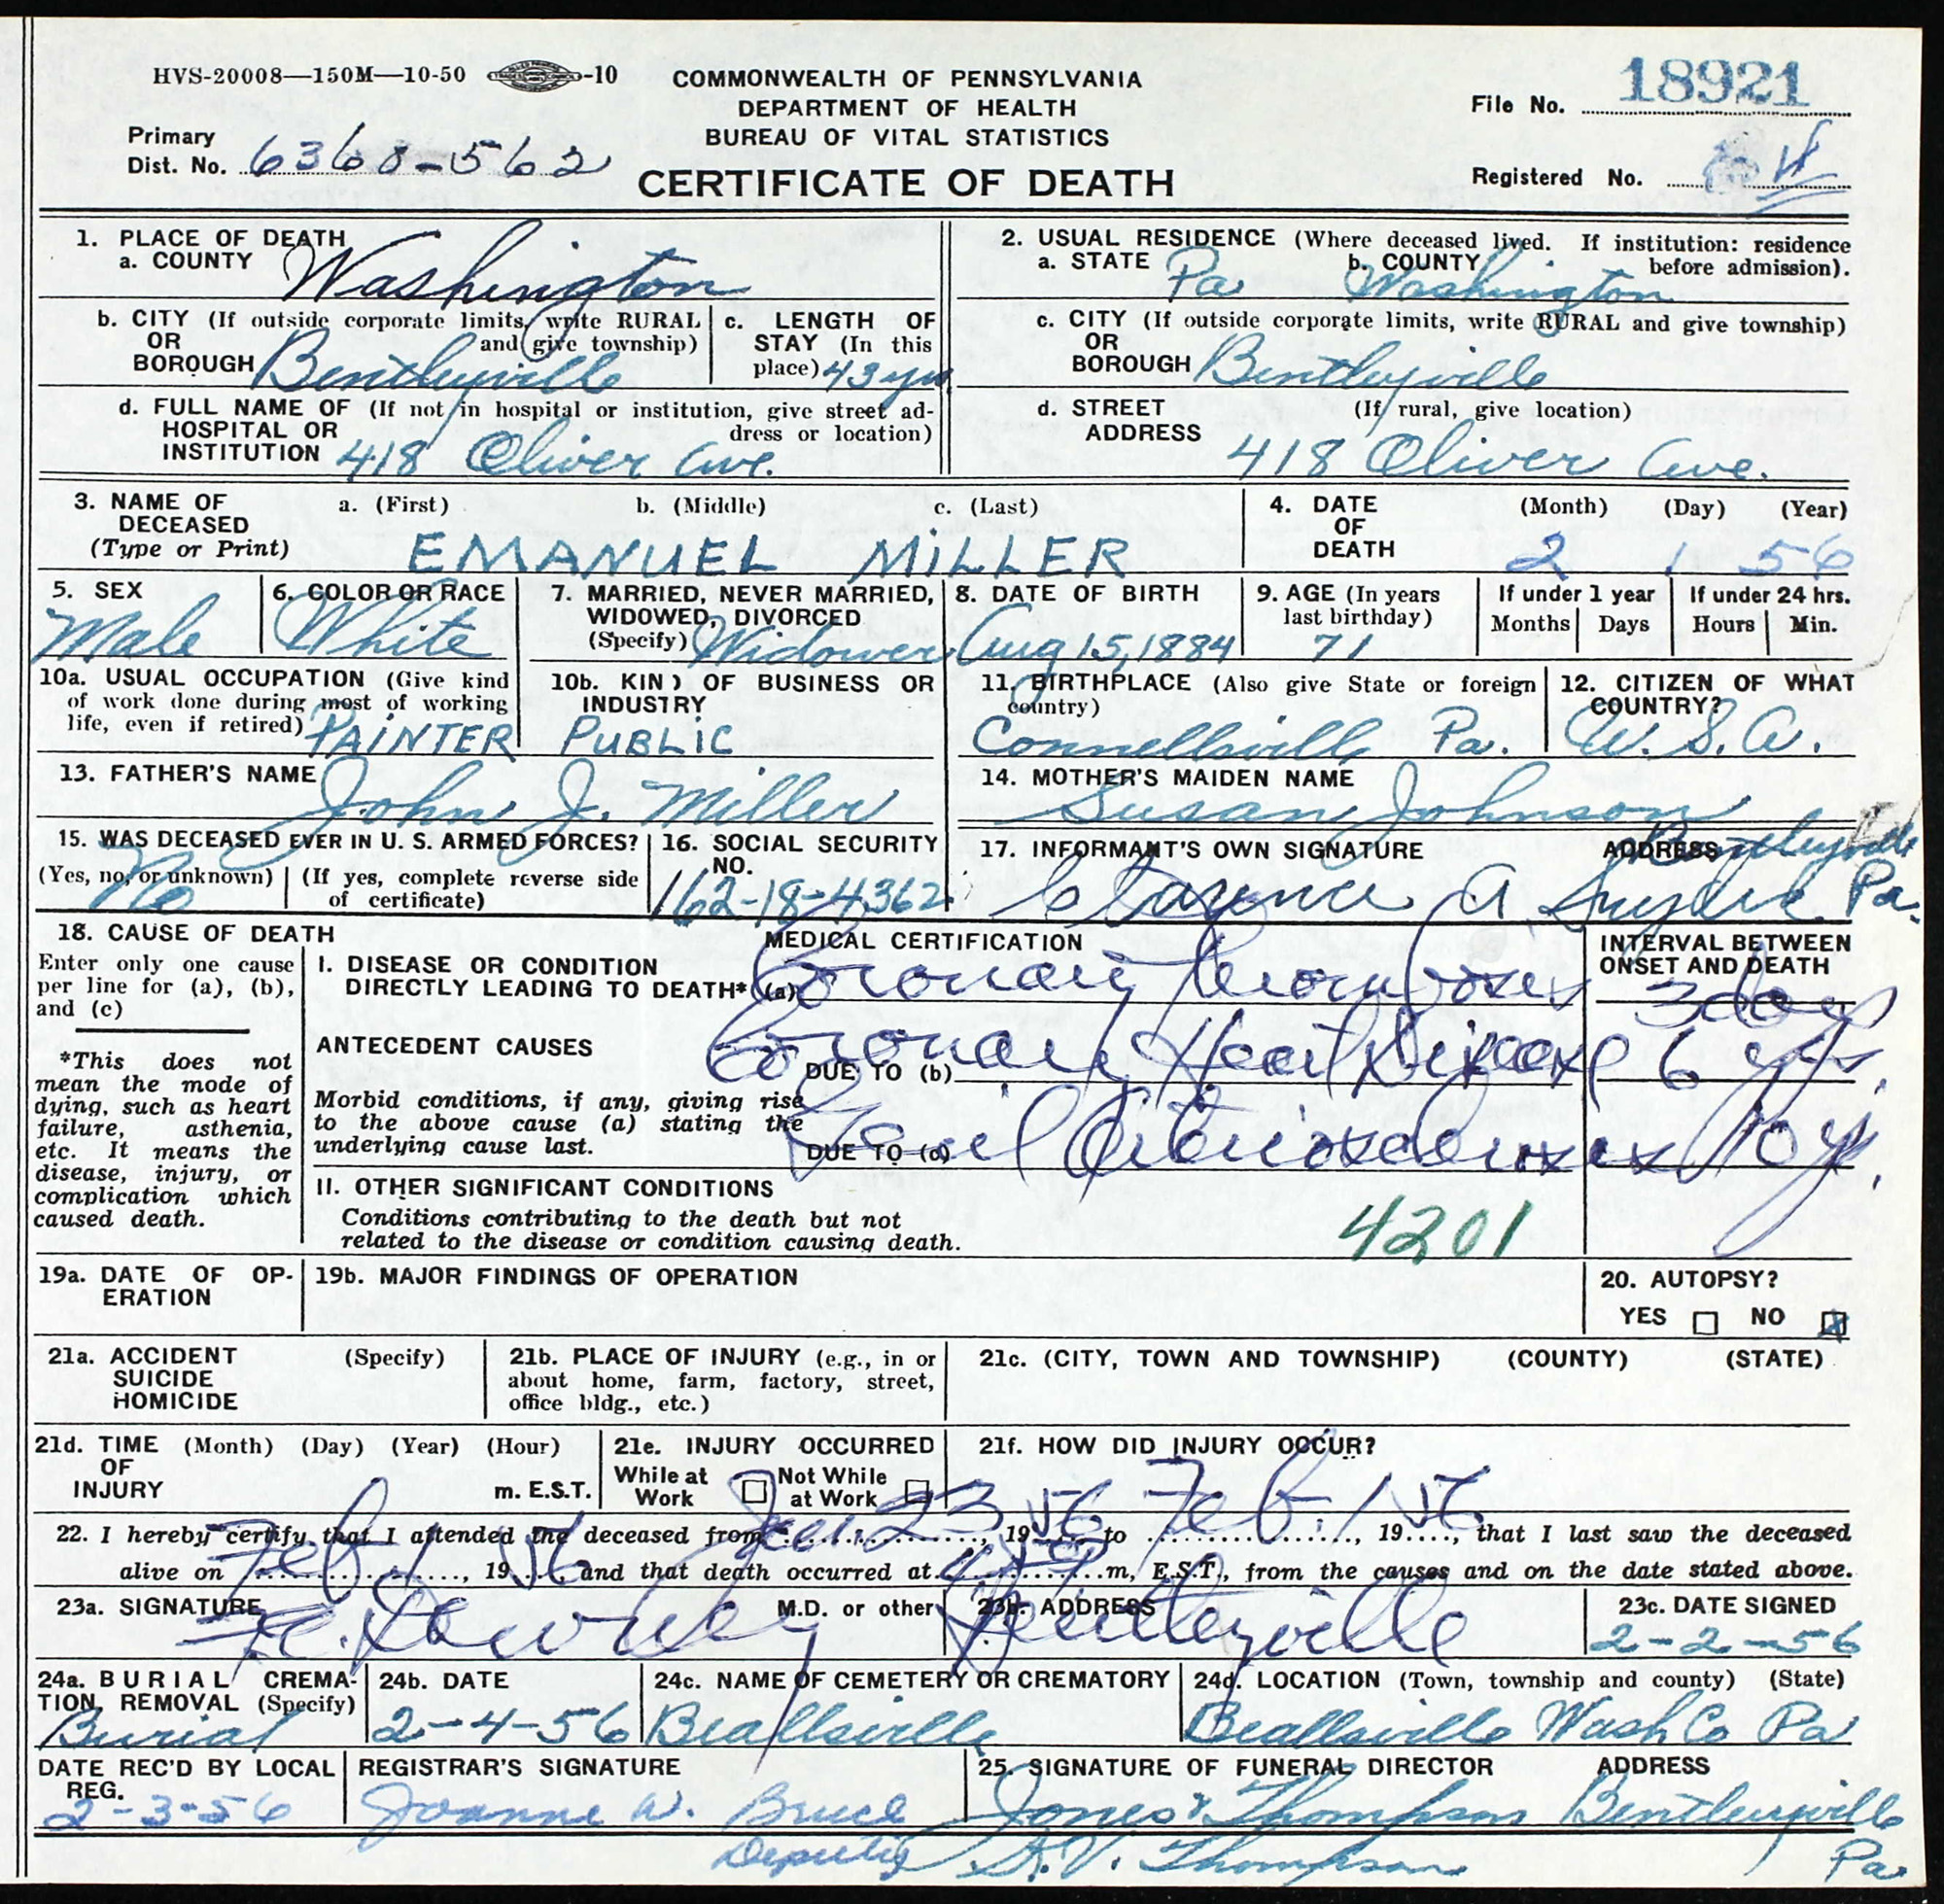 HVS-20008—150M—10-50 -10
COMMONWEALTH OF PENNSYLVANIA
DEPARTMENT OF HEALTH
BUREAU OF VITAL STATISTICS
CERTIFICATE OF DEATH
File No. 18921
Primary
Dist. No. 6368-562
Registered No. 4
1. PLACE OF DEATH
a. COUNTY Washington
2. USUAL RESIDENCE (Where deceased lived. If institution: residence before admission).
a. STATE Pa b. COUNTY Washington
b. CITY (If outside corporate limits, write RURAL
OR and give township)
BOROUGH Bentleyville
c. LENGTH OF
STAY (In this
place) 43 yrs
c. CITY (If outside corporate limits, write RURAL and give township)
OR
BOROUGH Bentleyville
d. FULL NAME OF (If not in hospital or institution, give street ad-
HOSPITAL OR dress or location)
INSTITUTION 418 Oliver Ave.
d. STREET (If rural, give location)
ADDRESS 418 Oliver Ave.
3. NAME OF a. (First) b. (Middle) c. (Last)
DECEASED
(Type or Print) EMANUEL MILLER
4. DATE (Month) (Day) (Year)
OF
DEATH 2 1 56
5. SEX
Male
6. COLOR OR RACE
White
7. MARRIED, NEVER MARRIED,
WIDOWED, DIVORCED
(Specify) Widower
8. DATE OF BIRTH
Aug 15, 1884
9. AGE (In years
last birthday)
71
If under 1 year
Months Days
If under 24 hrs.
Hours Min.
10a. USUAL OCCUPATION (Give kind
of work done during most of working
life, even if retired) PAINTER
10b. KIND OF BUSINESS OR
INDUSTRY
PUBLIC
11. BIRTHPLACE (Also give State or foreign
country)
Connellsville Pa.
12. CITIZEN OF WHAT
COUNTRY?
U. S. A.
13. FATHER'S NAME
John J. Miller
14. MOTHER'S MAIDEN NAME
Susan Johnson
15. WAS DECEASED EVER IN U. S. ARMED FORCES?
(Yes, no, or unknown) (If yes, complete reverse side
of certificate)
No
16. SOCIAL SECURITY
NO.
162-18-4362
17. INFORMANT'S OWN SIGNATURE ADDRESS Bentleyville
Clarence A Snyder Pa.
18. CAUSE OF DEATH
Enter only one cause
per line for (a), (b),
and (c)
*This does not
mean the mode of
dying, such as heart
failure, asthenia,
etc. It means the
disease, injury, or
complication which
caused death.
MEDICAL CERTIFICATION
I. DISEASE OR CONDITION
DIRECTLY LEADING TO DEATH* (a) Coronary Thrombosis
ANTECEDENT CAUSES
DUE TO (b) Coronary Heart Disease
Morbid conditions, if any, giving rise
to the above cause (a) stating the
underlying cause last.
DUE TO (c) Arteriosclerosis
II. OTHER SIGNIFICANT CONDITIONS
Conditions contributing to the death but not
related to the disease or condition causing death.
4201
INTERVAL BETWEEN
ONSET AND DEATH
3 days
6 yrs.
10 yrs.
19a. DATE OF OP-
ERATION
19b. MAJOR FINDINGS OF OPERATION
20. AUTOPSY?
YES NO X
21a. ACCIDENT (Specify)
SUICIDE
HOMICIDE
21b. PLACE OF INJURY (e.g., in or
about home, farm, factory, street,
office bldg., etc.)
21c. (CITY, TOWN AND TOWNSHIP) (COUNTY) (STATE)
21d. TIME (Month) (Day) (Year) (Hour)
OF
INJURY m. E.S.T.
21e. INJURY OCCURRED
While at Work Not While at Work
21f. HOW DID INJURY OCCUR?
22. I hereby certify that I attended the deceased from Jan. 23, 1956 to Feb 1, 1956, that I last saw the deceased
alive on Feb 1, 1956 and that death occurred at m, E.S.T., from the causes and on the date stated above.
23a. SIGNATURE M.D. or other
23b. ADDRESS
Bentleyville
23c. DATE SIGNED
2-2-56
24a. BURIAL CREMA-
TION, REMOVAL (Specify)
Burial
24b. DATE
2-4-56
24c. NAME OF CEMETERY OR CREMATORY
Beallsville
24d. LOCATION (Town, township and county) (State)
Beallsville Wash Co Pa
DATE REC'D BY LOCAL
REG.
2-3-56
REGISTRAR'S SIGNATURE
Joanne W. Bruce
Deputy
25. SIGNATURE OF FUNERAL DIRECTOR ADDRESS
Jones & Thompson Bentleyville
Thompson Pa